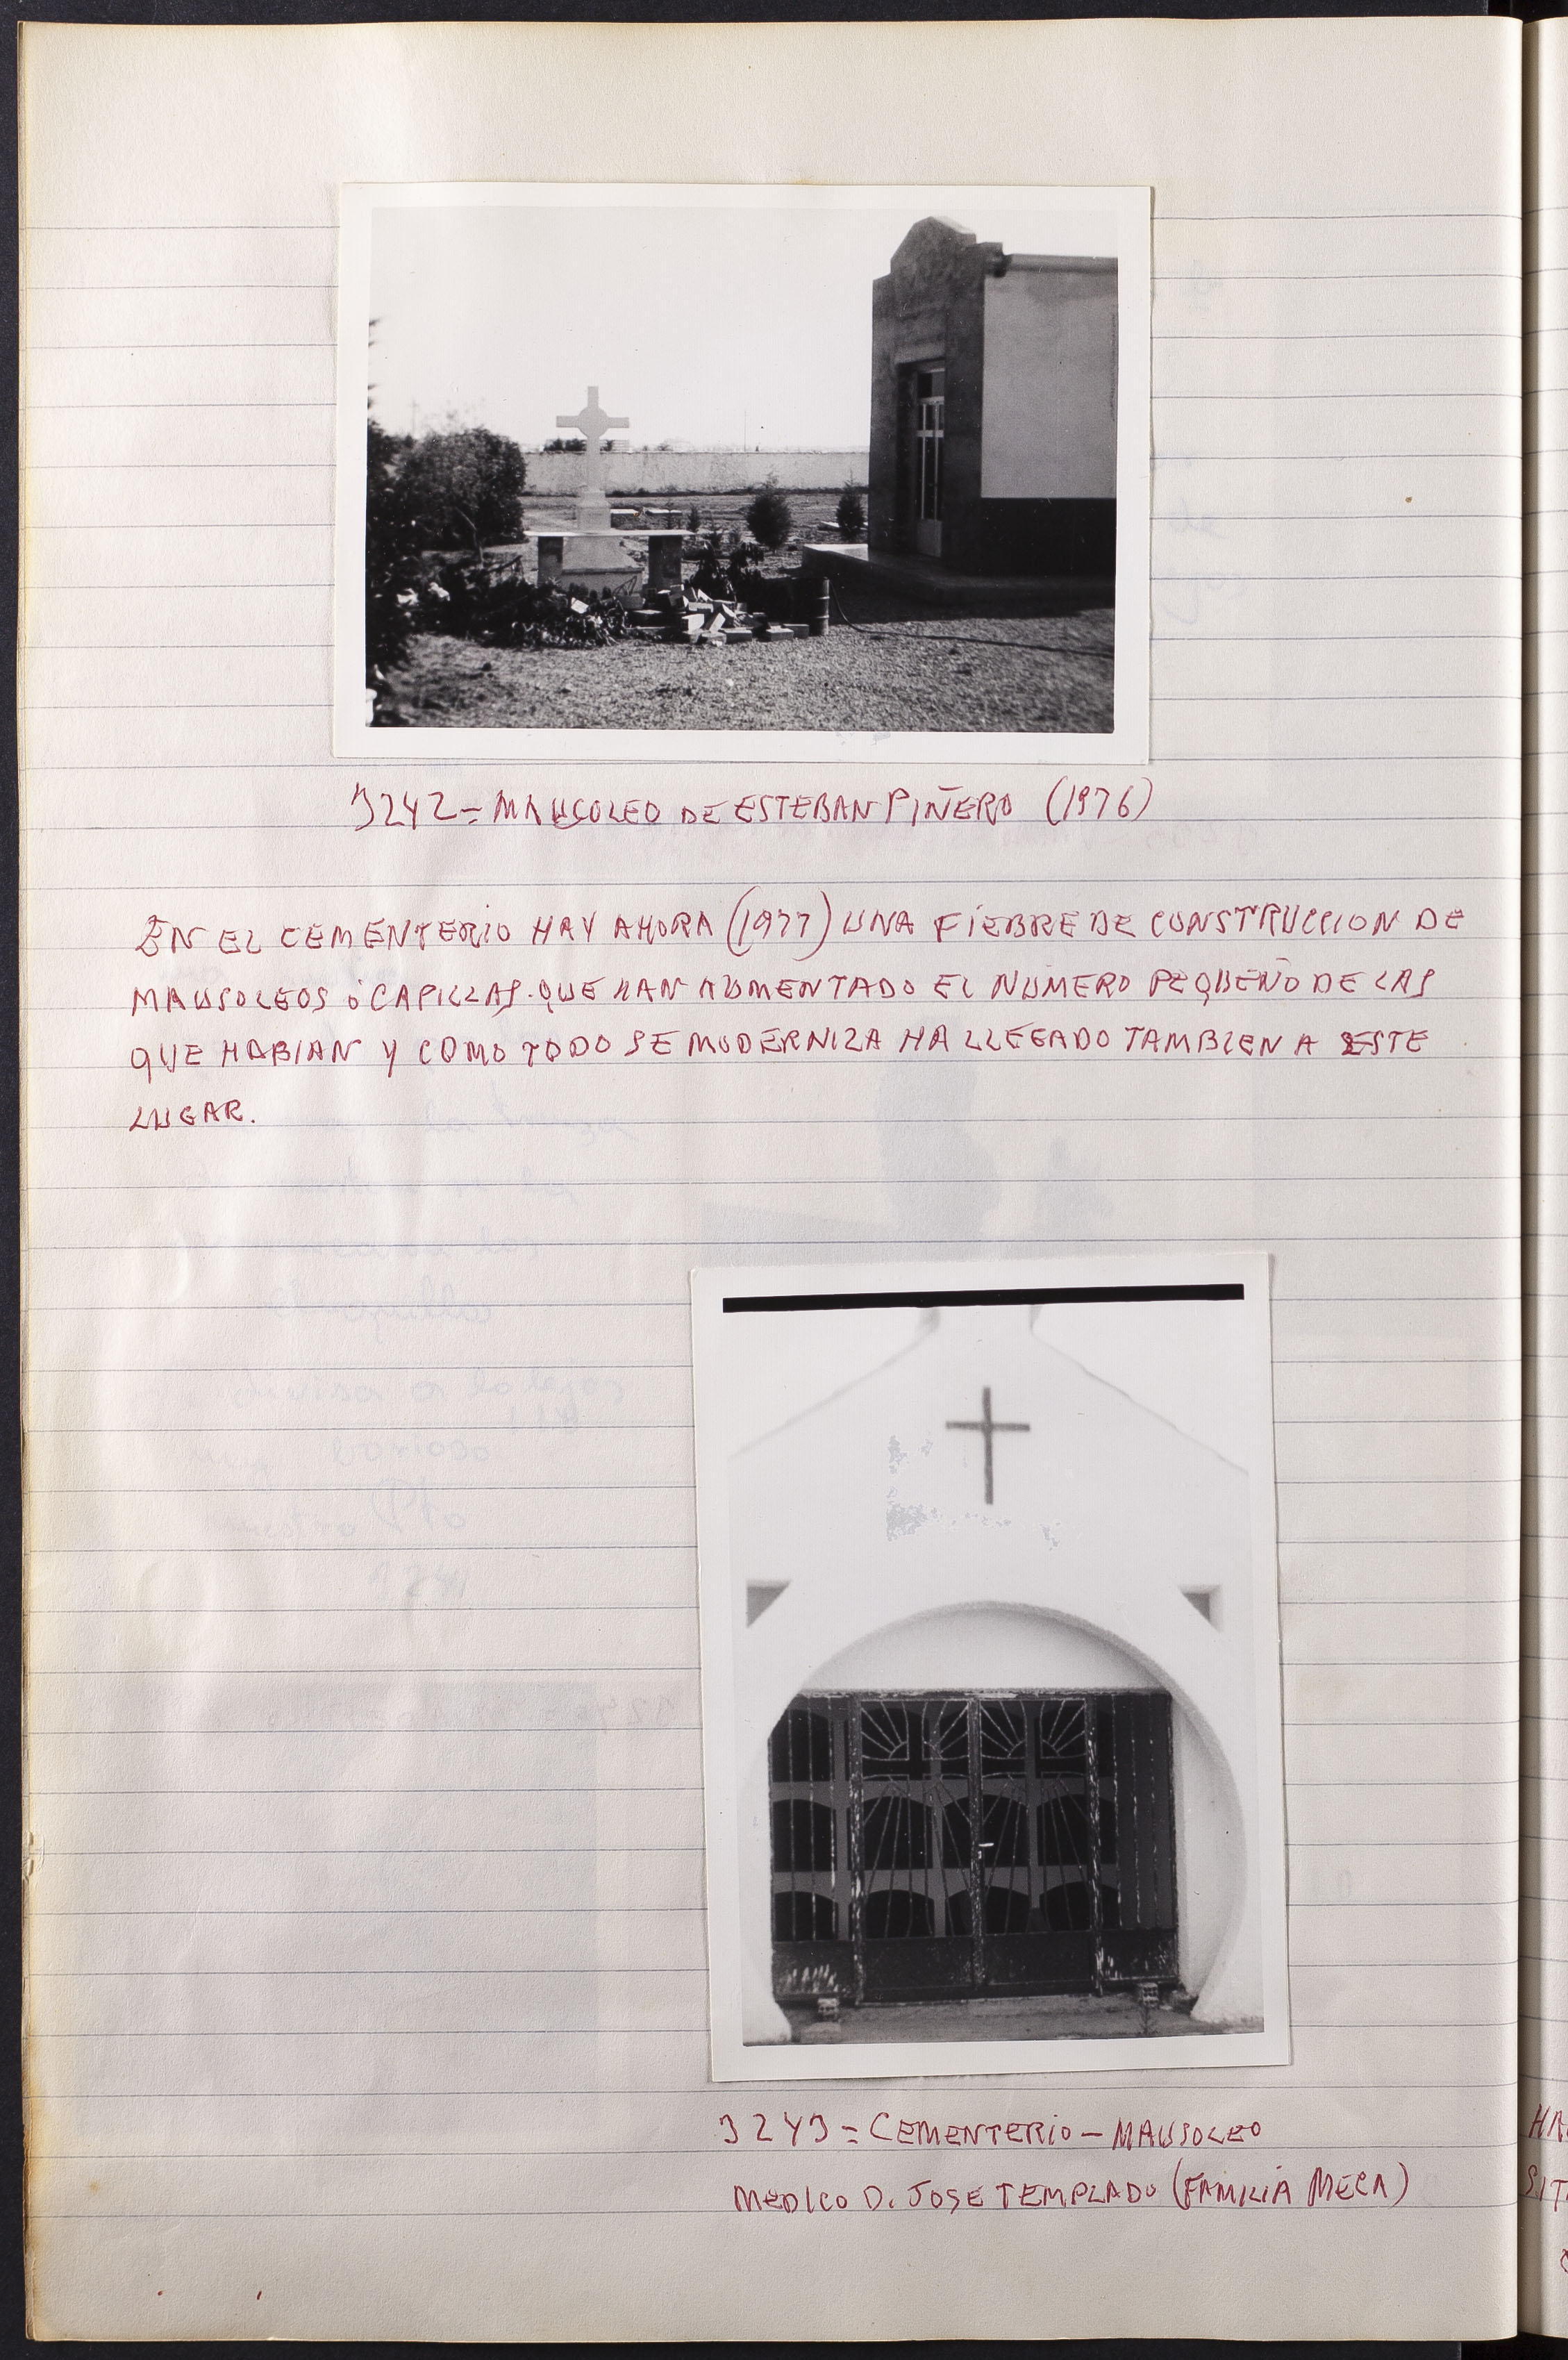 3242= MAUSOLEO DE ESTEBAN PIÑERO (1976)
EN EL CEMENTERIO HAY AHORA (1977) UNA FIEBRE DE CONSTRUCCION DE
MAUSOLEOS ó CAPILLAS. QUE HAN AUMENTADO EL NUMERO PEQUEÑO DE LAS
QUE HABIAN Y COMO TODO SE MODERNIZA HA LLEGADO TAMBIEN A ESTE
LUGAR.
3243= CEMENTERIO - MAUSOLEO
MEDICO D. JOSE TEMPLADO (FAMILIA MECA)